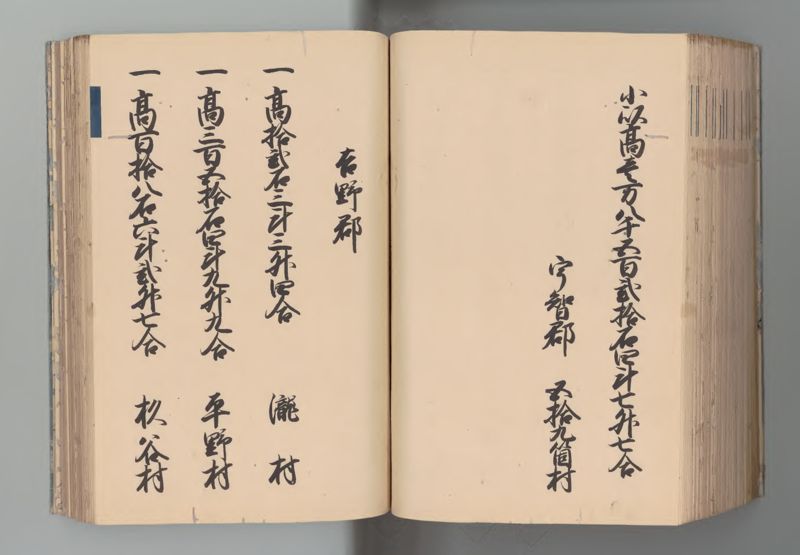 小以高壱万八千五百弐拾石四斗七升七合
宇智郡 五拾九箇村
吉野郡
一高拾弐石三斗三升四合 瀧村
一高三百五拾石四斗九升九合 平野村
一高百拾八石六斗弐升七合 杦谷村